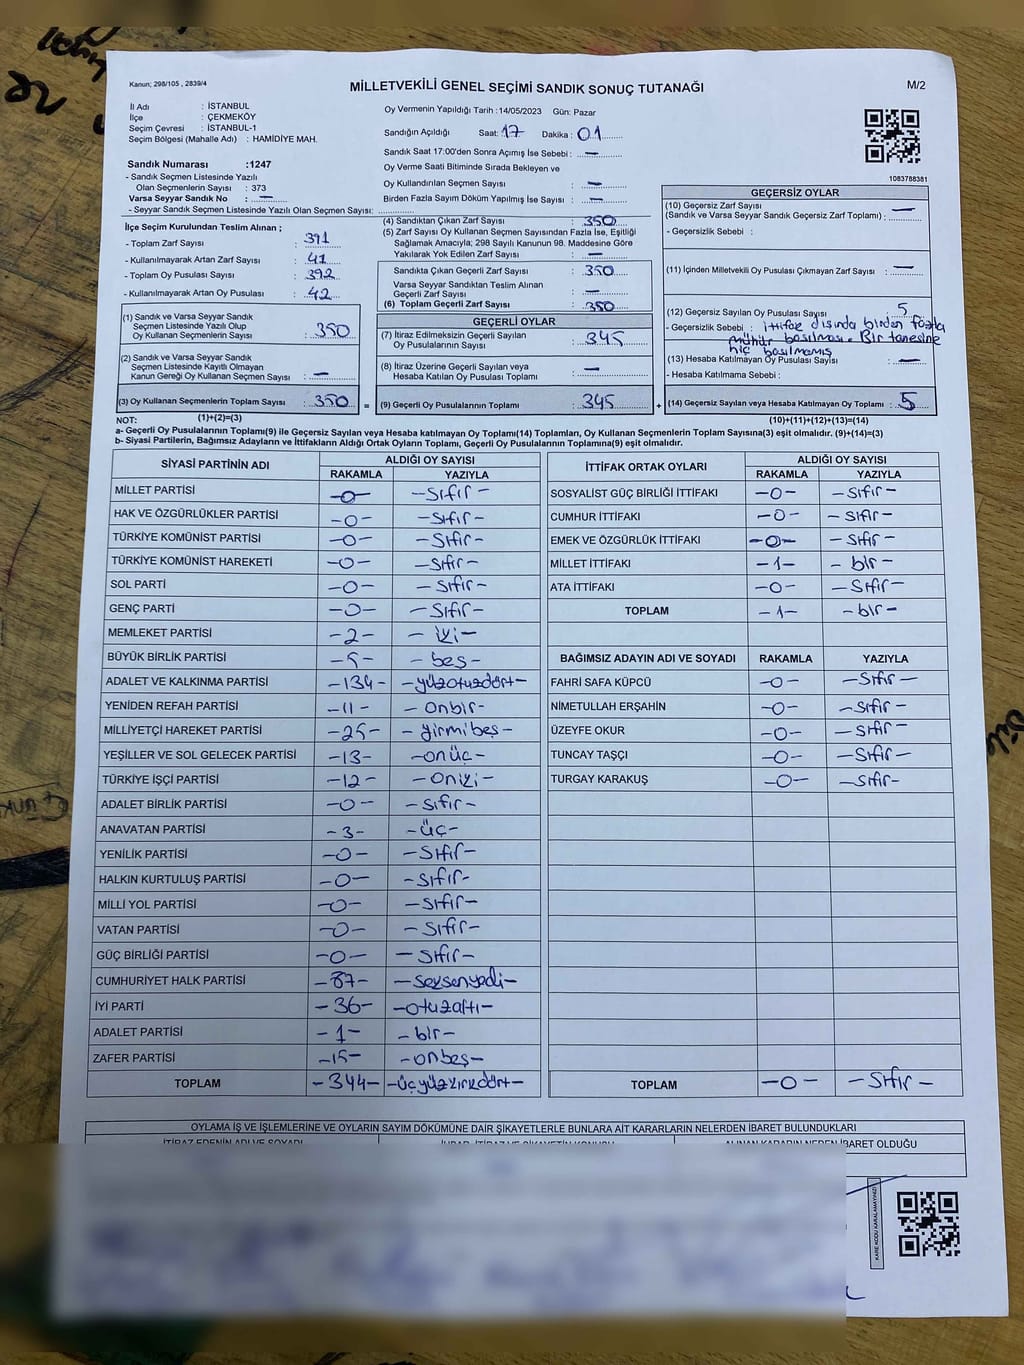 Kanun; 298/105 , 2839/4
MİLLETVEKİLİ GENEL SEÇİMİ SANDIK SONUÇ TUTANAĞI
M/2
İl Adı : İSTANBUL
İlçe : ÇEKMEKÖY
Seçim Çevresi : İSTANBUL-1
Seçim Bölgesi (Mahalle Adı) : HAMİDİYE MAH.
Sandık Numarası :1247
- Sandık Seçmen Listesinde Yazılı
Olan Seçmenlerin Sayısı : 373
Varsa Seyyar Sandık No : —
- Seyyar Sandık Seçmen Listesinde Yazılı Olan Seçmen Sayısı:
Oy Vermenin Yapıldığı Tarih :14/05/2023 Gün: Pazar
Sandığın Açıldığı Saat: 17 Dakika : 01
Sandık Saat 17:00'den Sonra Açımış İse Sebebi : —
Oy Verme Saati Bitiminde Sırada Bekleyen ve
Oy Kullandırılan Seçmen Sayısı : —
Birden Fazla Sayım Döküm Yapılmış İse Sayısı : —
1083788381
İlçe Seçim Kurulundan Teslim Alınan ;
- Toplam Zarf Sayısı : 391
- Kullanılmayarak Artan Zarf Sayısı : 41
- Toplam Oy Pusulası Sayısı : 392
- Kullanılmayarak Artan Oy Pusulası : 42
(1) Sandık ve Varsa Seyyar Sandık
Seçmen Listesinde Yazılı Olup
Oy Kullanan Seçmenlerin Sayısı : 350
(2) Sandık ve Varsa Seyyar Sandık
Seçmen Listesinde Kayıtlı Olmayan
Kanun Gereği Oy Kullanan Seçmen Sayısı : —
(3) Oy Kullanan Seçmenlerin Toplam Sayısı : 350
(1)+(2)=(3)
(4) Sandıktan Çıkan Zarf Sayısı : 350
(5) Zarf Sayısı Oy Kullanan Seçmen Sayısından Fazla İse, Eşitliği
Sağlamak Amacıyla; 298 Sayılı Kanunun 98. Maddesine Göre
Yakılarak Yok Edilen Zarf Sayısı : —
Sandıkta Çıkan Geçerli Zarf Sayısı : 350
Varsa Seyyar Sandıktan Teslim Alınan
Geçerli Zarf Sayısı : —
(6) Toplam Geçerli Zarf Sayısı : 350
GEÇERLİ OYLAR
(7) İtiraz Edilmeksizin Geçerli Sayılan
Oy Pusulalarının Sayısı : 345
(8) İtiraz Üzerine Geçerli Sayılan veya
Hesaba Katılan Oy Pusulası Toplamı : —
= (9) Geçerli Oy Pusulalarının Toplamı : 345 +
GEÇERSİZ OYLAR
(10) Geçersiz Zarf Sayısı
(Sandık ve Varsa Seyyar Sandık Geçersiz Zarf Toplamı) : —
- Geçersizlik Sebebi :
(11) İçinden Milletvekili Oy Pusulası Çıkmayan Zarf Sayısı : —
(12) Geçersiz Sayılan Oy Pusulası Sayısı : 5
- Geçersizlik Sebebi : ittifak dışında birden fazla
mühür basılması. Bir tanesine
hiç basılmamış
(13) Hesaba Katılmayan Oy Pusulası Sayısı : —
- Hesaba Katılmama Sebebi :
(14) Geçersiz Sayılan veya Hesaba Katılmayan Oy Toplamı : 5
(10)+(11)+(12)+(13)=(14)
NOT:
a- Geçerli Oy Pusulalarının Toplamı(9) ile Geçersiz Sayılan veya Hesaba katılmayan Oy Toplamı(14) Toplamları, Oy Kullanan Seçmenlerin Toplam Sayısına(3) eşit olmalıdır. (9)+(14)=(3)
b- Siyasi Partilerin, Bağımsız Adayların ve İttifakların Aldığı Ortak Oyların Toplamı, Geçerli Oy Pusulalarının Toplamına(9) eşit olmalıdır.
SİYASİ PARTİNİN ADI ALDIĞI OY SAYISI
RAKAMLA YAZIYLA
MİLLET PARTİSİ -0- -Sıfır-
HAK VE ÖZGÜRLÜKLER PARTİSİ -0- -Sıfır-
TÜRKİYE KOMÜNİST PARTİSİ -0- -Sıfır-
TÜRKİYE KOMÜNİST HAREKETİ -0- -Sıfır-
SOL PARTİ -0- -Sıfır-
GENÇ PARTİ -0- -Sıfır-
MEMLEKET PARTİSİ -2- -iki-
BÜYÜK BİRLİK PARTİSİ -5- -beş-
ADALET VE KALKINMA PARTİSİ -134- -yüzotuzdört-
YENİDEN REFAH PARTİSİ -11- -Onbir-
MİLLİYETÇİ HAREKET PARTİSİ -25- -yirmibeş-
YEŞİLLER VE SOL GELECEK PARTİSİ -13- -onüç-
TÜRKİYE İŞÇİ PARTİSİ -12- -Oniki-
ADALET BİRLİK PARTİSİ -0- -Sıfır-
ANAVATAN PARTİSİ -3- -üç-
YENİLİK PARTİSİ -0- -Sıfır-
HALKIN KURTULUŞ PARTİSİ -0- -Sıfır-
MİLLİ YOL PARTİSİ -0- -Sıfır-
VATAN PARTİSİ -0- -Sıfır-
GÜÇ BİRLİĞİ PARTİSİ -0- -Sıfır-
CUMHURİYET HALK PARTİSİ -87- -seksenyedi-
İYİ PARTİ -36- -otuzaltı-
ADALET PARTİSİ -1- -bir-
ZAFER PARTİSİ -15- -onbeş-
TOPLAM -344- -üçyüzkırkdört-
İTTİFAK ORTAK OYLARI ALDIĞI OY SAYISI
RAKAMLA YAZIYLA
SOSYALİST GÜÇ BİRLİĞİ İTTİFAKI -0- -Sıfır-
CUMHUR İTTİFAKI -0- -Sıfır-
EMEK VE ÖZGÜRLÜK İTTİFAKI -0- -Sıfır-
MİLLET İTTİFAKI -1- -bir-
ATA İTTİFAKI -0- -Sıfır-
TOPLAM -1- -bir-
BAĞIMSIZ ADAYIN ADI VE SOYADI RAKAMLA YAZIYLA
FAHRİ SAFA KÜPCÜ -0- -Sıfır-
NİMETULLAH ERŞAHİN -0- -Sıfır-
ÜZEYFE OKUR -0- -Sıfır-
TUNCAY TAŞÇI -0- -Sıfır-
TURGAY KARAKUŞ -0- -Sıfır-
TOPLAM -0- -Sıfır-
OYLAMA İŞ VE İŞLEMLERİNE VE OYLARIN SAYIM DÖKÜMÜNE DAİR ŞİKAYETLERLE BUNLARA AİT KARARLARIN NELERDEN İBARET BULUNDUKLARI
İTİRAZ EDENİN ADI VE SOYADI İHBAR, İTİRAZ VE ŞİKAYETİN KONUSU ALINAN KARARIN NEDEN İBARET OLDUĞU
KARE KODU KARALAMAYINIZ!